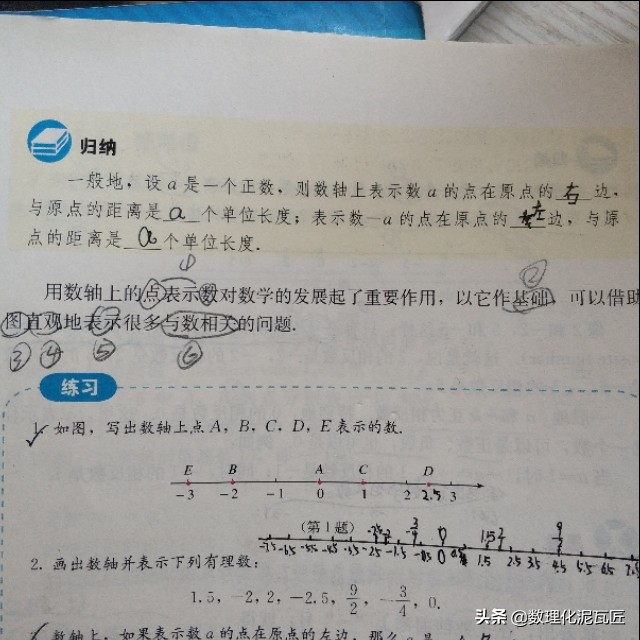 归纳
一般地，设a是一个正数，则数轴上表示数a的点在原点的右边，
与原点的距离是a个单位长度；表示数－a的点在原点的左边，与原
点的距离是a个单位长度.
① ②
用数轴上的点表示数对数学的发展起了重要作用，以它作基础，可以借助
图直观地表示很多与数相关的问题.
③ ④ ⑤ ⑥
练习
1. 如图，写出数轴上点A，B，C，D，E表示的数.
E B A C D
－3 －2 －1 0 1 2 2.5 3
（第1题） -3/4 0 1.5 9/2
1.5 2.5 3.5 4.5 5.5 6.5
2. 画出数轴并表示下列有理数：
1.5，－2，2，－2.5，9/2，－3/4，0.
数轴上，如果表示数a的点在原点的左边，那么a是一个
头条 @数理化泥瓦匠